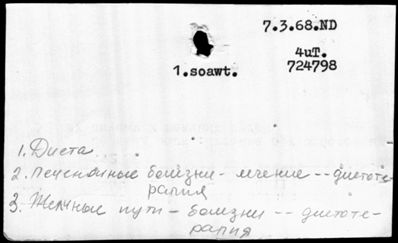 7.3.68.ND
4uT.
1.soawt.
724798
1. Диета
2. Печеночные болезни - лечение -- диетоте-
рапия
3. Желчные пути - болезни -- диетоте-
рапия